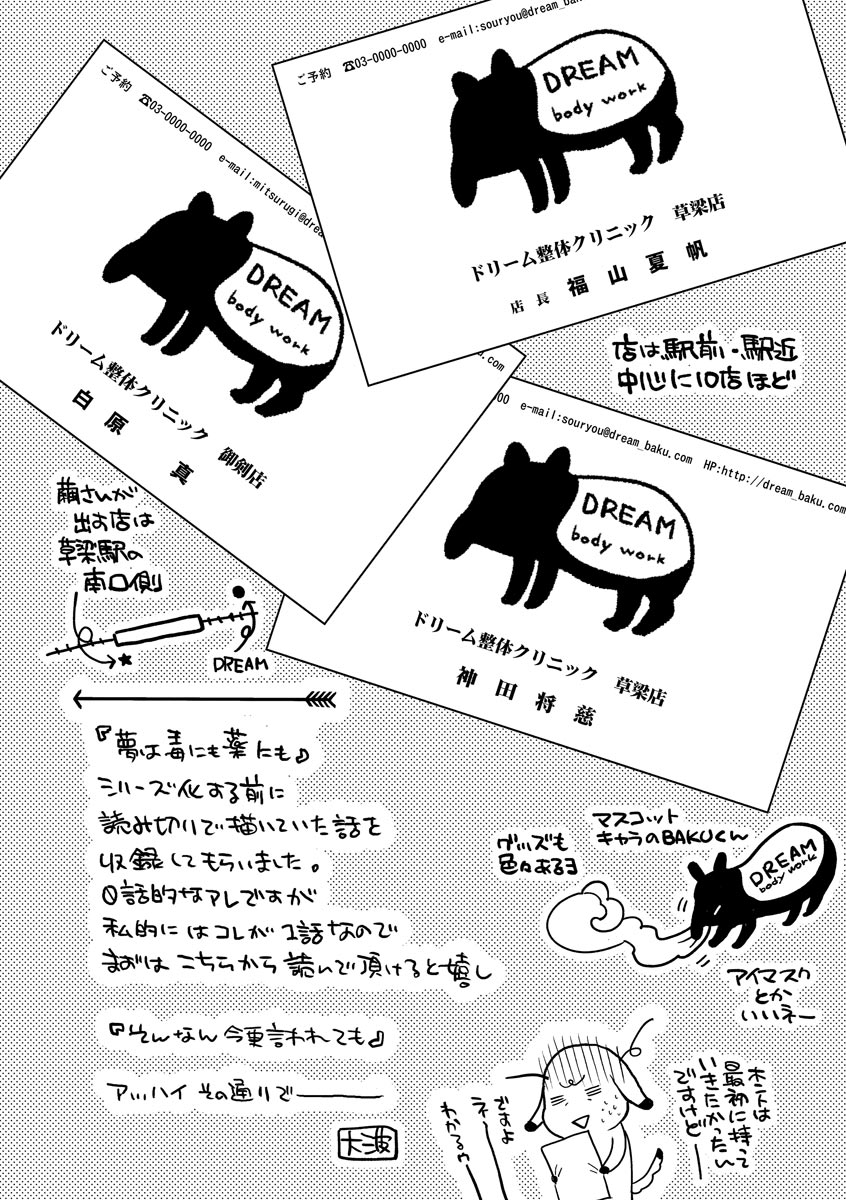 ご予約 ☎03-0000-0000 e-mail:souryou@dream_ba
DREAM
body work
ドリーム整体クリニック 草梁店
店長 福山夏帆
ご予約 ☎03-0000-0000 e-mail:mitsurugi@drea
DREAM
body work
ドリーム整体クリニック 御剣店
白原 真
.com
店は駅前・駅近
中心に10店ほど
00 e-mail:souryou@dream_baku.com HP:http://dream_baku.com
DREAM
body work
ドリーム整体クリニック 草梁店
神田将慈
繭さんが
出す店は
草梁駅の
南口側
DREAM
『夢は毒にも薬にも』
シリーズ化する前に
読み切りで描いていた話を
収録してもらいました。
0話的なアレですが
私的にはコレが1話なので
まずはこちらから読んで頂けると嬉し
『そんなん今更言われても』
アッハイその通りで――
大波
マスコット
キャラのBAKUくん
グッズも
色々あるヨ
DREAM
body work
アイマスク
とか
いいネー
ホントは
最初に持って
いきたかったん
ですけど――
ですよ
ネ――
わかるゥ――